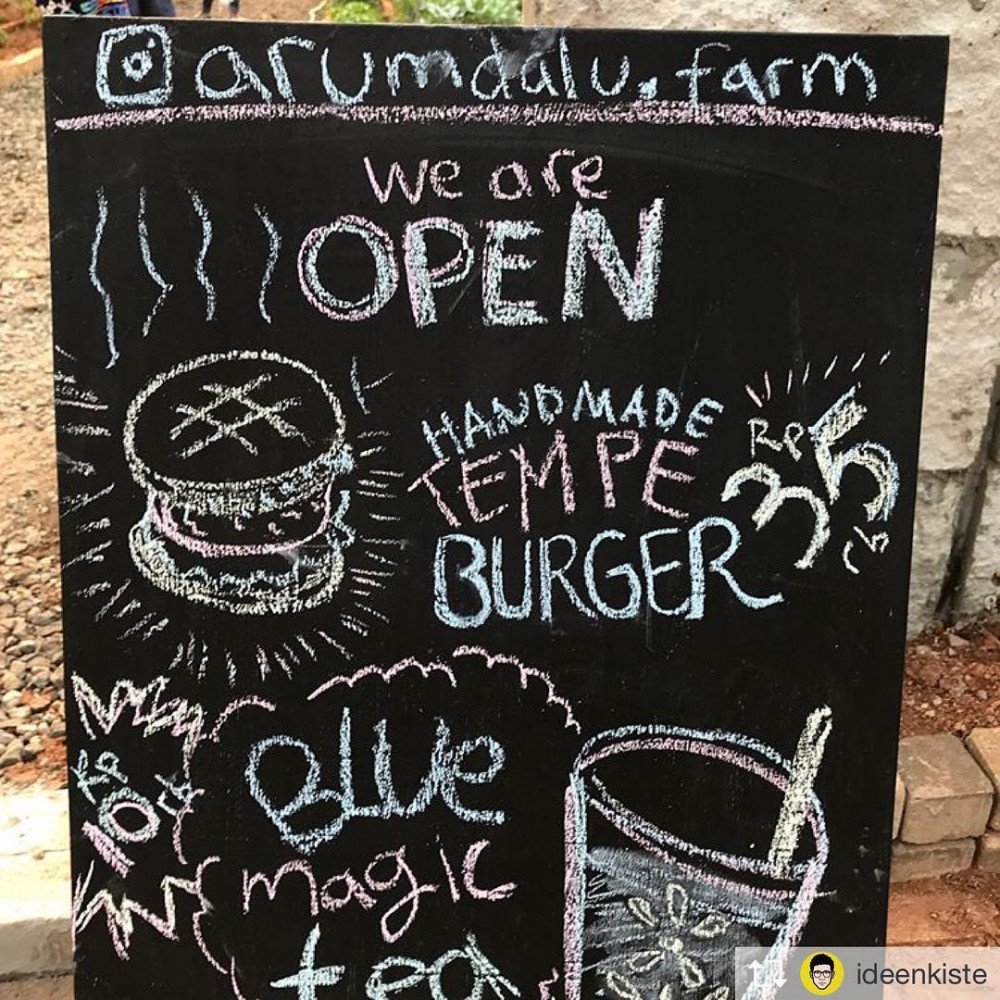 arumdalu.farm
We are
OPEN
HANDMADE
TEMPE
BURGER
RP
35
rb
Rp
10rb
BLUe
magic
tea
ideenkiste